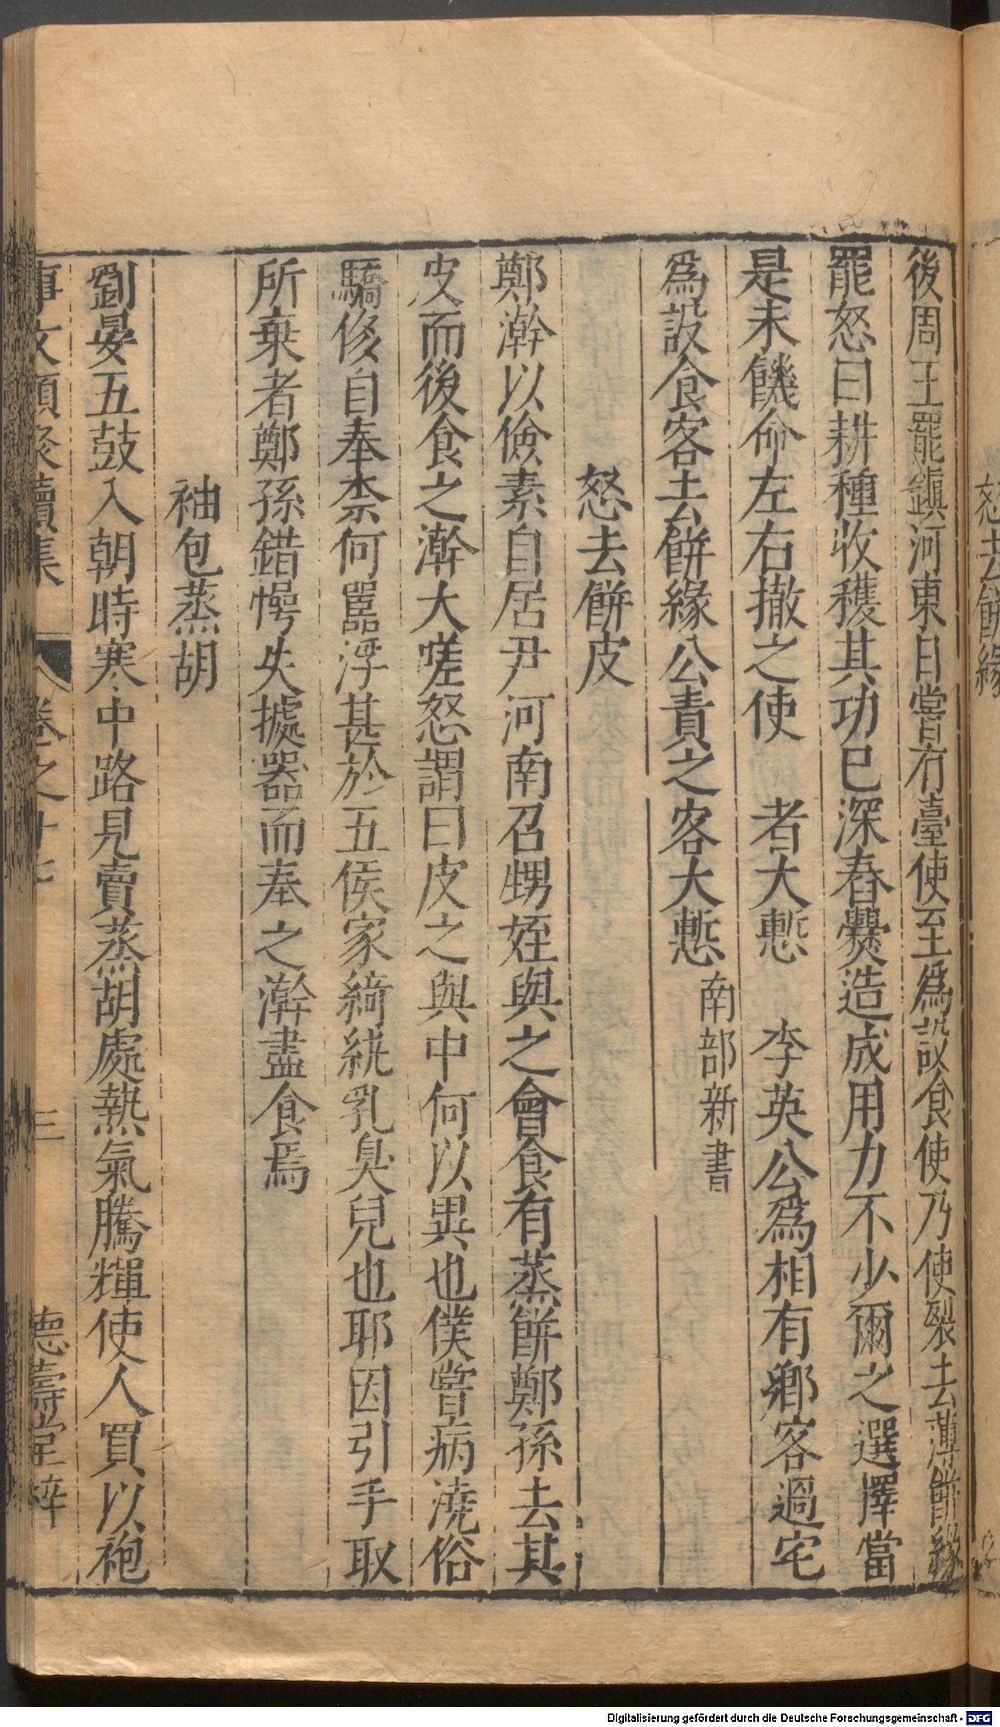 怒去餅緣
後周王羆鎮河東日嘗有臺使至爲設食使乃使裂去薄餅緣
羆怒曰耕種收穫其功已深舂爨造成用力不少爾之選擇當
是未饑命左右撤之使 者大慙 李英公爲相有鄉客過宅
爲設食客去餅緣公責之客大慙南部新書
怒去餅皮
鄭澣以儉素自居尹河南召甥姪與之會食有蒸餅鄭孫去其
皮而後食之澣大嗟怒謂曰皮之與中何以異也僕嘗病澆俗
驕侈自奉柰何嚚浮甚於五侯家綺紈乳臭兒也耶因引手取
所棄者鄭孫錯愕失據器而奉之澣盡食焉
袖包蒸胡
劉晏五鼓入朝時寒中路見賣蒸胡處熱氣騰輝使人買以袍
事文類聚續集 卷之十七 三 德壽堂梓
Digitalisierung gefördert durch die Deutsche Forschungsgemeinschaft - DFG